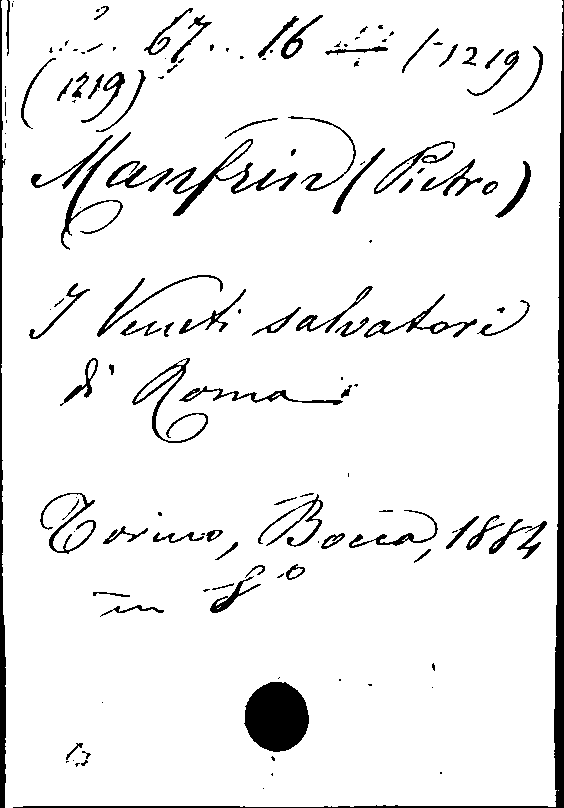 67. 16 (-1219)
(1219)
Manfrin (Pietro)
I Veneti salvatori
di Roma
Torino, Bocca, 1884
in 8º